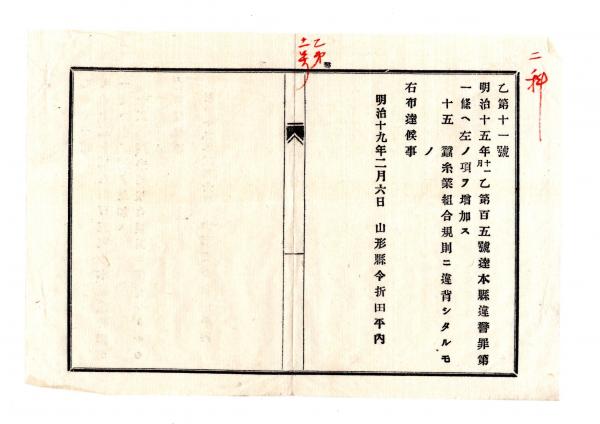 二科
乙第十一號
乙第十一號
明治十五年十一月乙第百五號達本縣違警罪第
一條ヘ左ノ項ヲ増加ス
十五 蠶糸業組合規則ニ違背シタルモ
ノ
右布達候事
明治十九年二月六日 山形縣令折田平内